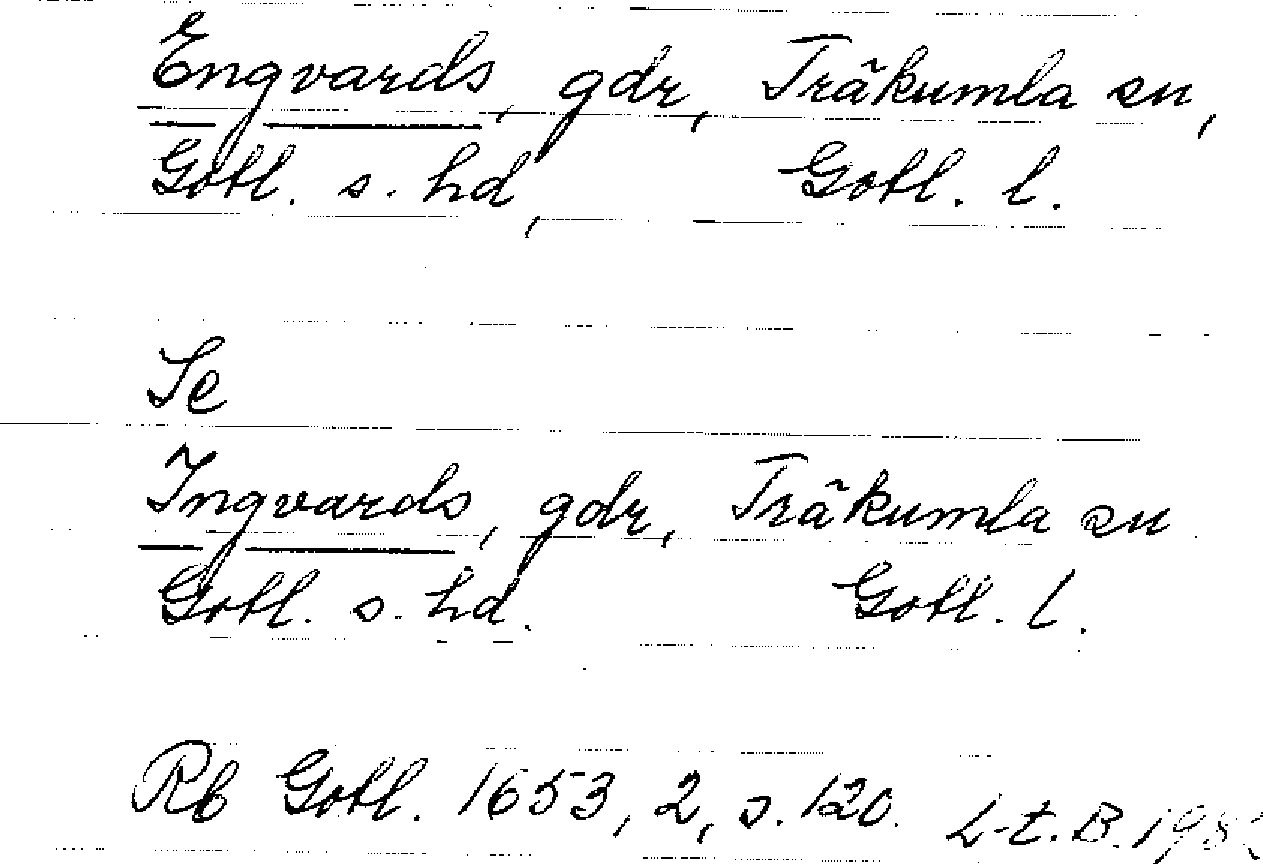 Engvards, gdr, Träkumla sn,
Gotl. s. hd, Gotl. l.
Se
Ingvards, gdr, Träkumla sn
Gotl. s. hd. Gotl. l.
Rb Gotl. 1653, 2, s. 120. L-t. B.